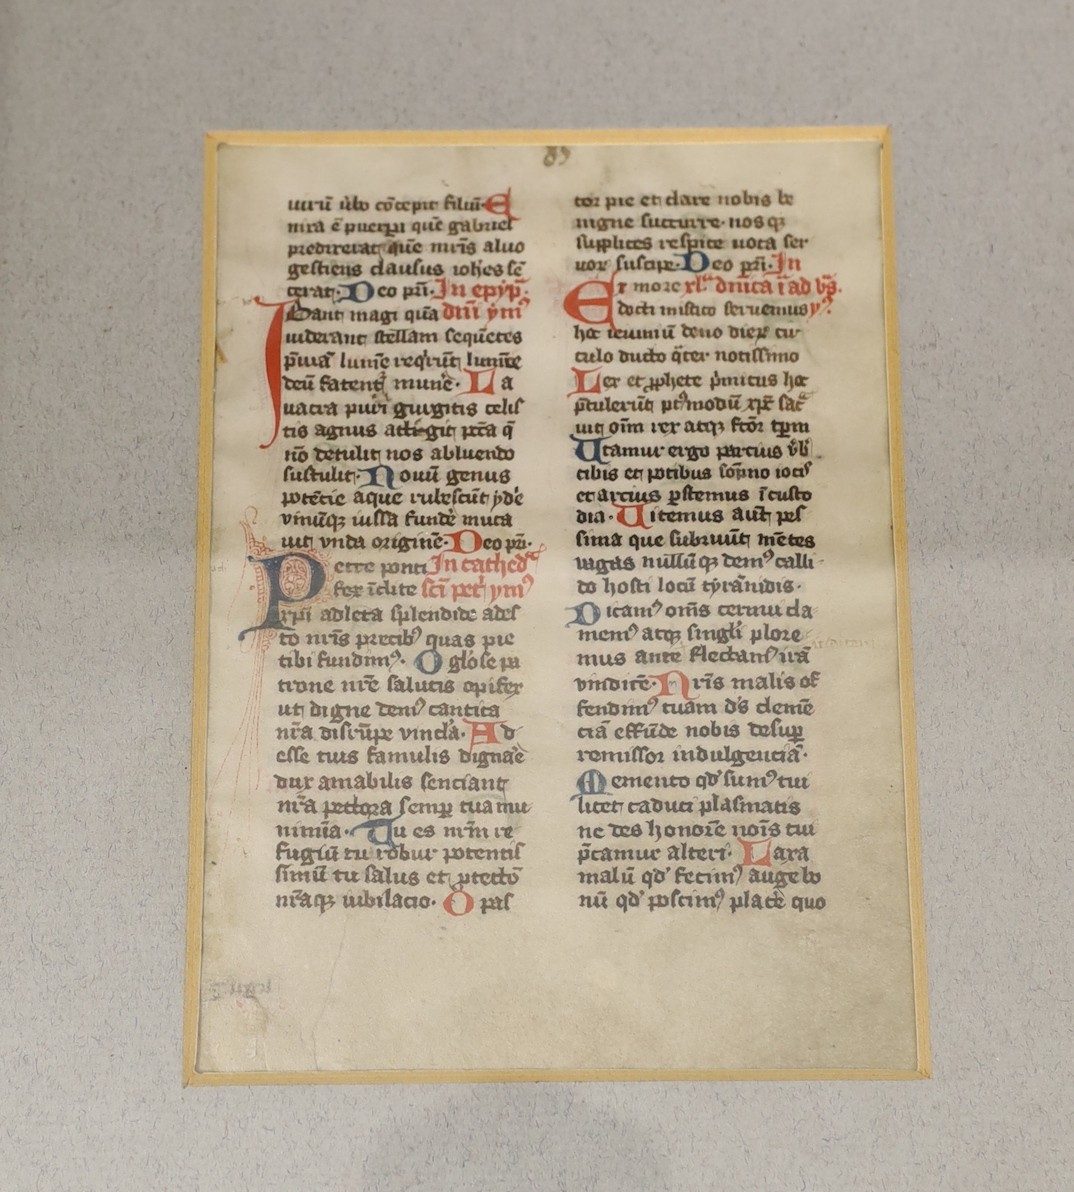 uirū ūbo cōcepit filiū· E
nixa ē puerpa quē gabriel
predixerat quē mr̄is aluo
gestiens clausus ioh̄es sē
cerat· Deo pr̄i· In epyp̄
Ibant magi quā dn̄i ym̄
uiderant stellam sequētes
p̄uiā lumīe req̄rūt lumīe
deū fatent᷑ mun̄e· La
uacra puri gurgitis celis
tis agnus attigit pcc̄a q̄
nō detulit nos abluendo
sustulit· Nouū genus
potētie aque rubescūt ydr̄e
vinūqꝫ iussa fundēr̄ muta
uit vnda originē· Deo pr̄i·
Petre ponti In cathedr̄a
fex īclite sc̄i petri ymꝰ
xp̄i adleta splendide ades
to nr̄is precibꝰ quas pie
tibi fundimꝰ· O gl̄ose pa
trone nr̄e salutis opifex
ut digne demꝰ cantica
nr̄a disrūpe vincla· Ad
esse tuis famulis dignāe
dux amabilis senciant
nr̄a pectora semꝑ tua mu
nimīa· Tu es nr̄m re
fugiū tu robur potentis
simū tu salus et ꝓtectō
nr̄aqꝫ iubilacio· O pas
tor pie et clare nobis be
nigne succurre· nos qꝫ
supplices respice uota ser
uor suscipe· Deo pr̄i· In
Ex more xlᵃ dn̄ica ī ad vs̄.
docti mistico seruemus yꝰ
hoc ieiuniū deno dierꝝ cir
culo ducto q̄ter notissimo
Lex et ꝓphete p̄mitus hoc
p̄tulerūt ptꝰmodū xp̄c sac̄
uit oīm rex atqꝫ fcōr tꝑm
Utamur ergo parcius v̄b̄
cibis et potibus sōpno iocis
et arcius ꝑstemus ī custo
dia· Uitemus aut̄ pes
sima que subruūt mētes
uagas nullūqꝫ demꝰ calli
do hosti locū tyrānidis·
Dicamꝰ om̄s cernui cla
memꝰ atqꝫ singli plore
mus ante flectamꝰ irā
vindicē· Nr̄is malis of
fendimꝰ tuam dś clemē
ciā effūde nobis desuꝑ
remissor indulgenciā·
Memento qd̓ sumꝰ tui
licet caduci plasmatis
ne des honorē noīs tui
p̄camur alteri· Laxa
malū qd̓ fecimꝰ auge bo
nū qd̓ poscimꝰ placēr̄ quo